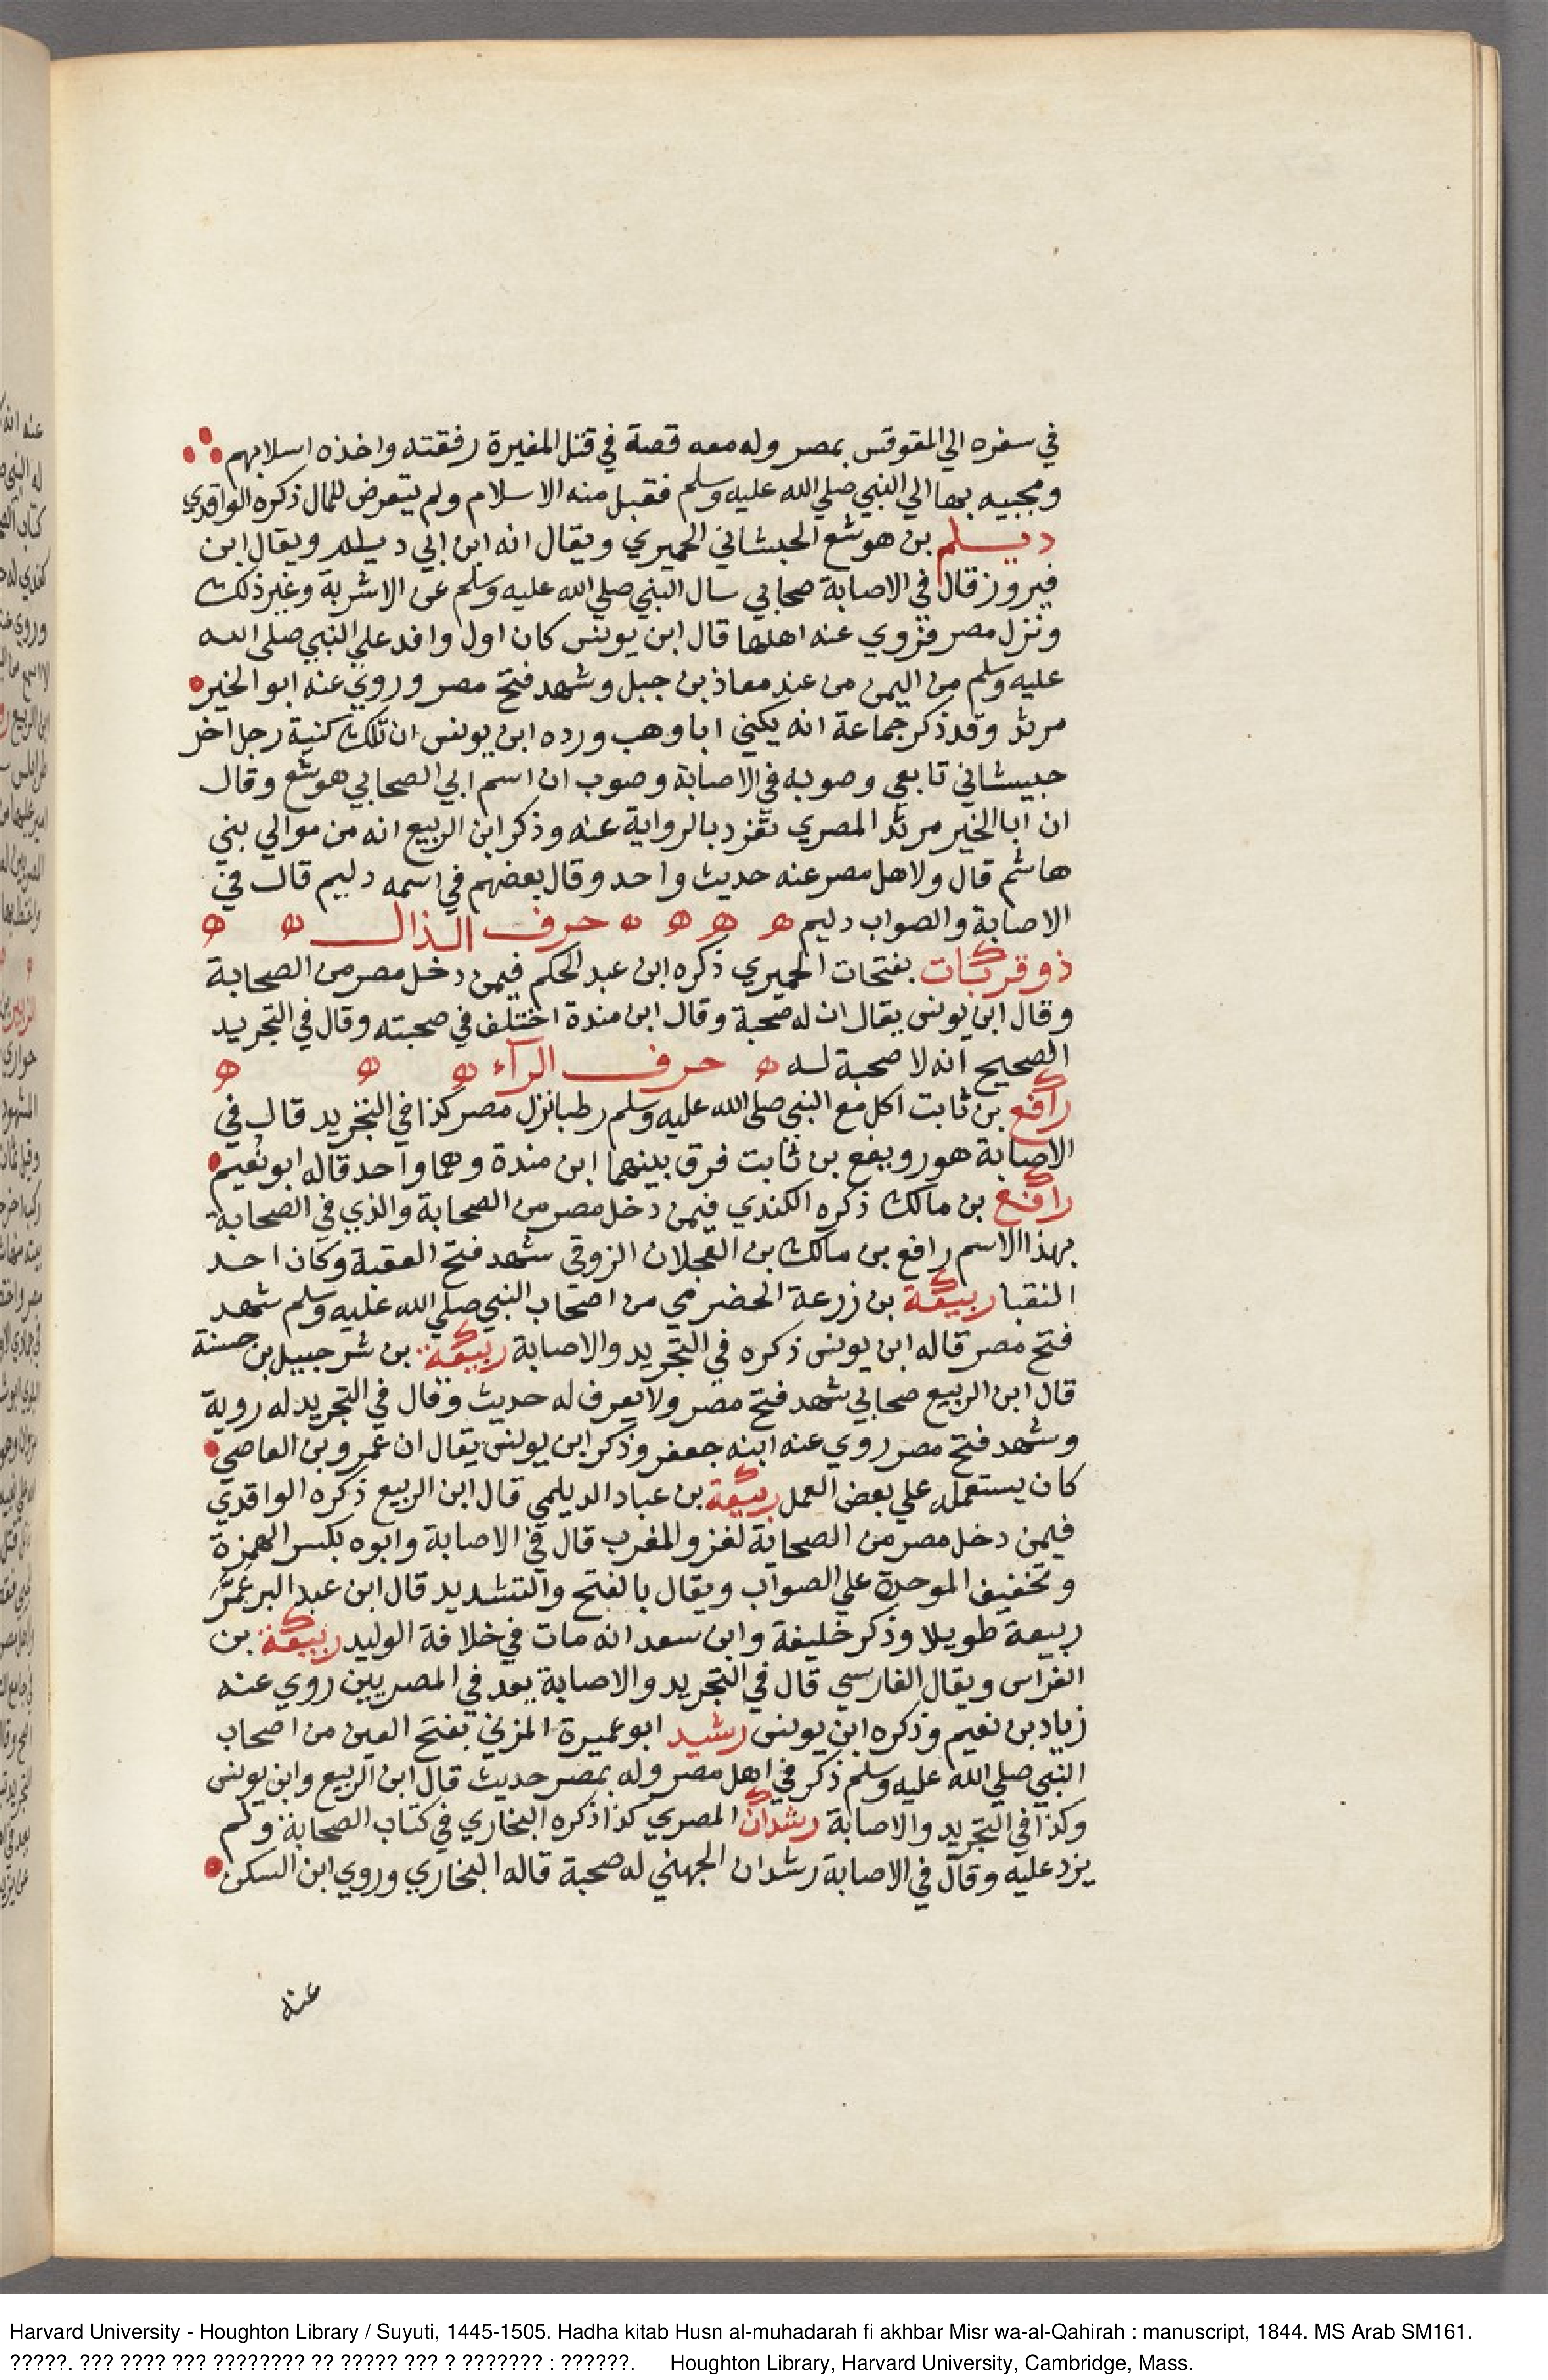 في سفره الي المقوقس بمصر وله معه قصة في قتل المغيرة رفقته واخذه اسلابهم
ومجييه بها الي النبي صلي الله عليه وسلم فقبل منه الاسلام ولم يتعرض للمال ذكره الواقدي
ديلم بن هوشع الجيشاني الحميري ويقال انه ابن ابي ديلم ويقال ابن
فيروز قال في الاصابة صحابي سال النبي صلي الله عليه وسلم عن الاشربة وغير ذلك
ونزل مصر فروي عنه اهلها قال ابن يونس كان اول وافد علي النبي صلي الله
عليه وسلم من اليمن من عند معاذ بن جبل وشهد فتح مصر وروي عنه ابو الخير
مرثد وقد ذكر جماعة انه يكني ابا وهب ورده ابن يونس ان تلك كنية رجل اخر
جيشاني تابعي وصوبه في الاصابة وصوب ان اسم ابي الصحابي هوشع وقال
ان ابا الخير مرثد المصري تفرد بالرواية عنه وذكر ابن الربيع انه من موالي بني
هاشم قال ولاهل مصر عنه حديث واحد وقال بعضهم في اسمه دليم قال في
الاصابة والصواب دليم ه ه ه ه حرف الذال ه ه
ذو قربات بفتحات الحميري ذكره ابن عبد الحكم فيمن دخل مصر من الصحابة
وقال ابن يونس يقال ان له صحبة وقال ابن مندة اختلف في صحبته وقال في التجريد
الصحيح انه لا صحبة له ه حرف الرآء ه ه ه
رافع بن ثابت اكل مع النبي صلي الله عليه وسلم رطبا نزل مصر كذا في التجريد قال في
الاصابة هو رويفع بن ثابت فرق بينهما ابن مندة وهما واحد قاله ابو نعيم
رافع بن مالك ذكره الكندي فيمن دخل مصر من الصحابة والذي في الصحابة
بهذا الاسم رافع بن مالك بن العجلان الزوقي شهد فتح العقبة وكان احد
النقبا ربيعة بن زرعة الحضرمي من اصحاب النبي صلي الله عليه وسلم شهد
فتح مصر قاله ابن يونس ذكره في التجريد والاصابة ربيعة بن شرحبيل بن حسنة
قال ابن الربيع صحابي شهد فتح مصر ولا يعرف له حديث وقال في التجريد له روية
وشهد فتح مصر روي عنه ابنه جعفر وذكر ابن يونس يقال ان عمرو بن العاصي
كان يستعمله علي بعض العمل ربيعة بن عباد الديلمي قال ابن الربيع ذكره الواقدي
فيمن دخل مصر من الصحابة لغزو المغرب قال في الاصابة وابوه بكسر الهمزة
وتخفيف الموحدة علي الصواب ويقال بالفتح والتشديد قال ابن عبد البر عمّر
ربيعة طويلا وذكر خليفة وابن سعد انه مات في خلافة الوليد ربيعة بن
الفراس ويقال الفارسي قال في التجريد والاصابة يعد في المصريين روي عنه
زياد بن نعيم وذكره ابن يونس رشيد ابو عميرة المزني بفتح العين من اصحاب
النبي صلي الله عليه وسلم ذكر في اهل مصر وله بمصر حديث قال ابن الربيع وابن يونس
وكذا في التجريد والاصابة رشدان المصري كذا ذكره البخاري في كتاب الصحابة ولم
يزد عليه وقال في الاصابة رشدان الجهني له صحبة قاله البخاري وروي ابن السكن
عنه
Harvard University - Houghton Library / Suyuti, 1445-1505. Hadha kitab Husn al-muhadarah fi akhbar Misr wa-al-Qahirah : manuscript, 1844. MS Arab SM161.
?????. ??? ???? ??? ???????? ?? ????? ??? ? ??????? : ??????. Houghton Library, Harvard University, Cambridge, Mass.